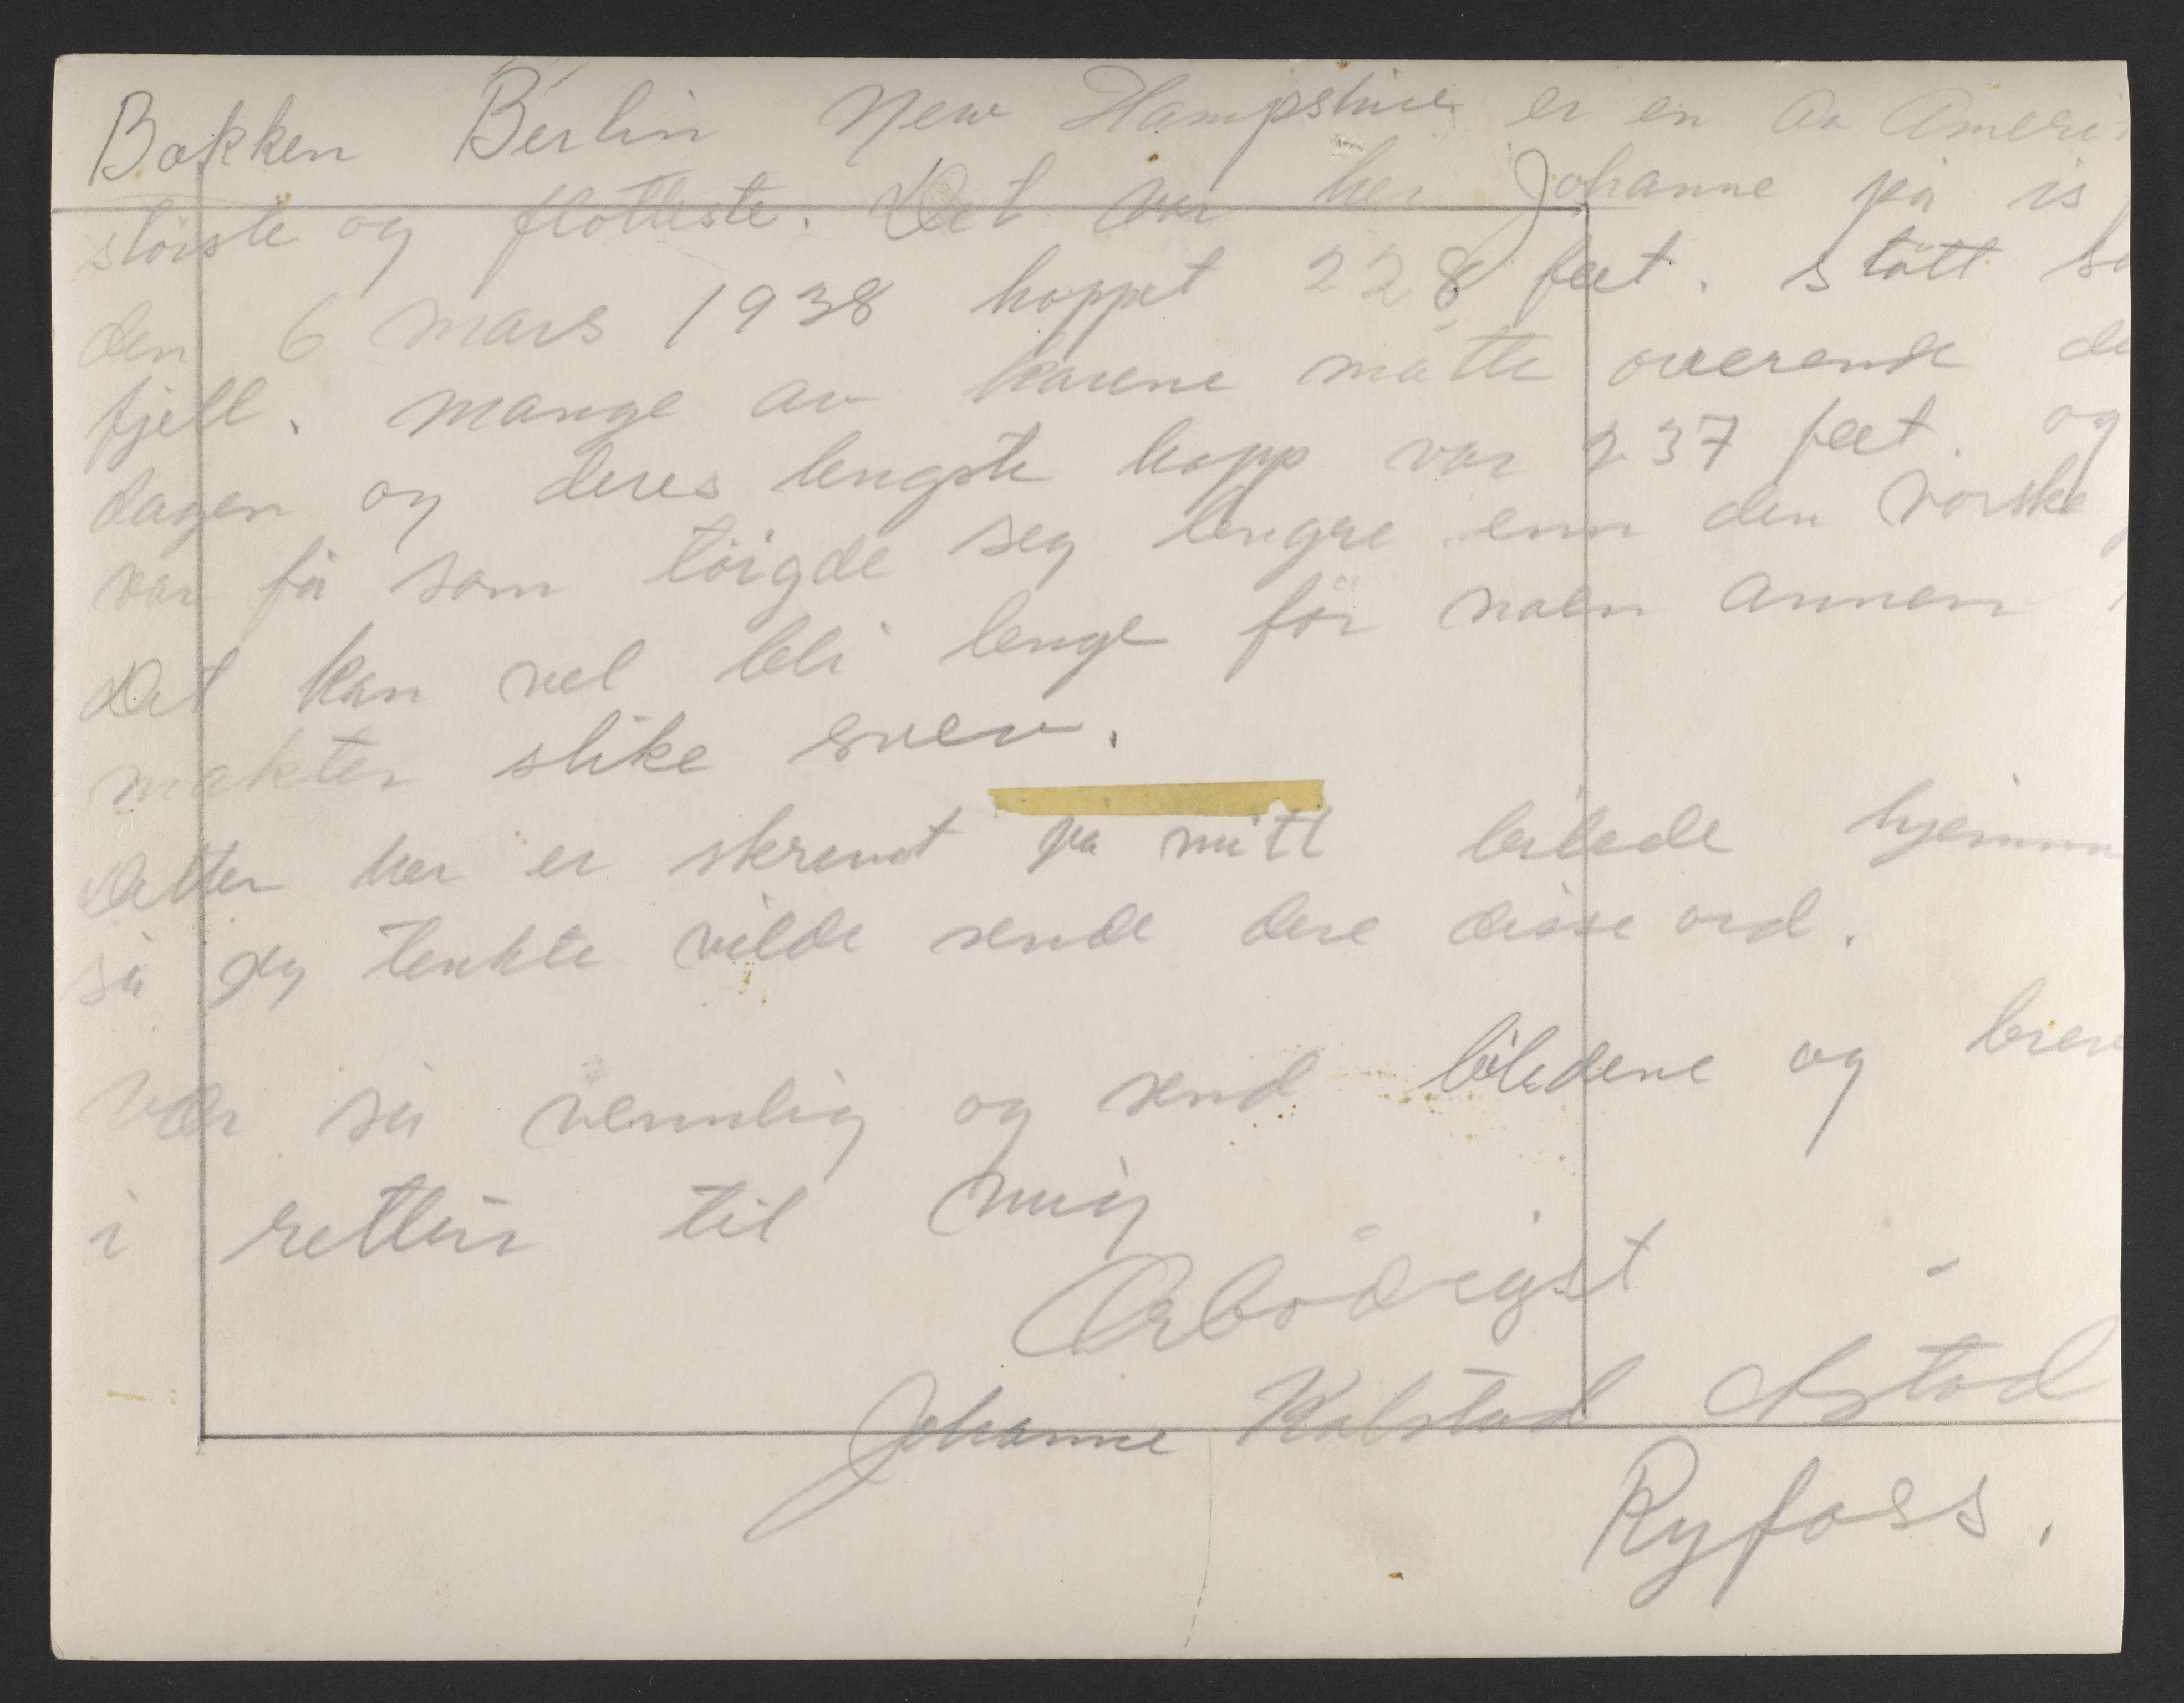 Bakken Berlin New Hampshire er en av Ameri
störste og flotteste. Det var her Johanne på is
den 6 mars 1938 hoppet 228 feet. Stött so
fjell. Mange av karene måtte overende de
dagen og deres lengste hopp var 237 feet. og
var få som töigde seg lengre enn den norske
Det kan vel bli lenge för noen annen
makter slike svev.
Detter her er skrevet på mitt bilede hjemme
så jeg tenkte vilde sende dere disse ord.
Vær så vennlig og send biledene og brev
i rettur til mig
Ærbödigst
Johanne Kolstad Östad
Ryfoss.